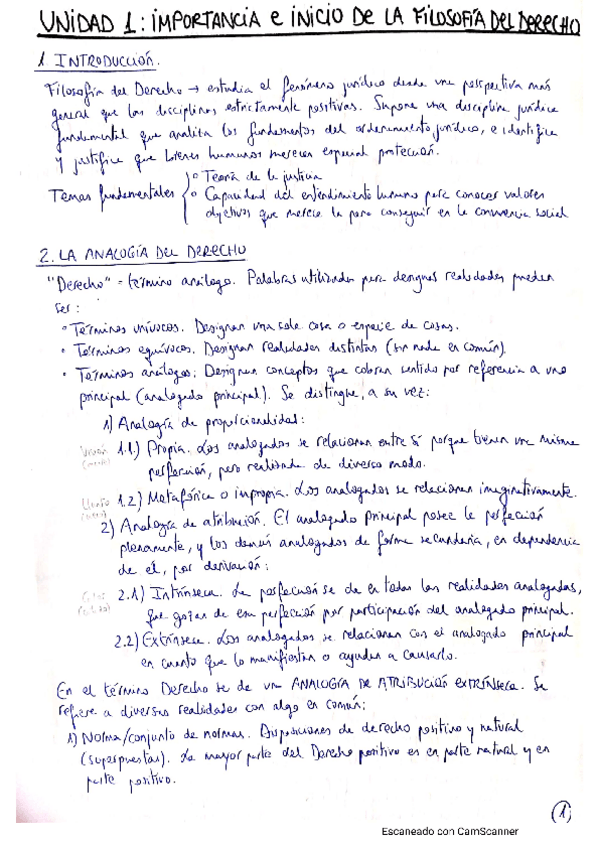 UNIDAD 1: IMPORTANCIA e INICIO DE LA FILOSOFÍA DEL DERECHO
1. INTRODUCCIÓN.
Filosofía del Derecho → estudia el fenómeno jurídico desde una perspectiva más
general que las disciplinas estrictamente positivas. Supone una disciplina jurídica
fundamental que analiza los fundamentos del ordenamiento jurídico, e identifica
y justifica que bienes humanos merecen especial protección.
Temas fundamentales
• Teoría de la justicia
• Capacidad del entendimiento humano para conocer valores
objetivos que merece la pena conseguir en la convivencia social
2. LA ANALOGÍA DEL DERECHO
"Derecho" = término análogo. Palabras utilizadas para designar realidades pueden
ser:
• Términos unívocos. Designan una sola cosa o especie de cosas.
• Términos equívocos. Designan realidades distintas (sin nada en común).
• Términos análogos: Designan conceptos que cobran sentido por referencia a uno
principal (analogado principal). Se distingue, a su vez:
1) Analogía de proporcionalidad:
1.1.) Propia. Los analogados se relacionan entre sí porque tienen una misma
perfección, pero realizada de diverso modo.
1.2) Metafórica o impropia. Los analogados se relacionan imaginativamente.
2) Analogía de atribución. El analogado principal posee la perfección
plenamente, y los demás analogados de forma secundaria, en dependencia
de él, por derivación:
2.1.) Intrínseca. La perfección se da en todas las realidades analogadas,
que gozan de esa perfección por participación del analogado principal.
2.2) Extrínseca. Los analogados se relacionan con el analogado principal
en cuanto que lo manifiestan o ayudan a causarlo.
En el término Derecho se da una ANALOGÍA DE ATRIBUCIÓN EXTRÍNSECA. Se
refiere a diversas realidades con algo en común:
1) Norma/conjunto de normas. Disposiciones de derecho positivo y natural
(superpuestas). La mayor parte del Derecho positivo es en parte natural y en
parte positivo.
1
Escaneado con CamScanner